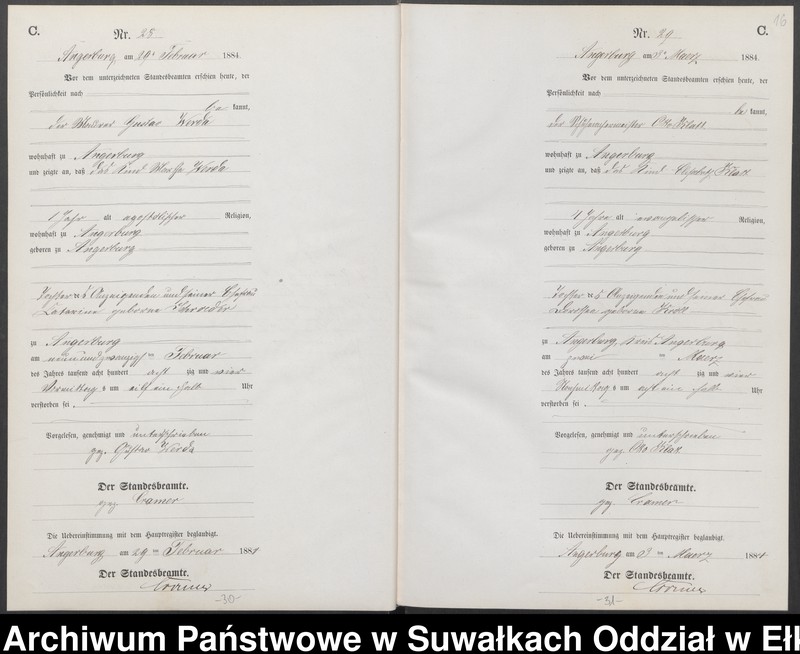 C.
Nr. 25
Angerburg am 29ⁿ Februar 1884.
Vor dem unterzeichneten Standesbeamten erschien heute, der
Persönlichkeit nach
be kannt,
der Gustav Werda
wohnhaft zu Angerburg
und zeigte an, daß das Kind Martha Werda
1 Jahr alt apostolischer Religion,
wohnhaft zu Angerburg
geboren zu Angerburg
Tochter des Anzeigenden und seiner Ehefrau
geborne Schroeder
zu Angerburg
am neunundzwanzigsten Februar
des Jahres tausend acht hundert acht zig und vier
Vormittags um elf ein halb Uhr
verstorben sei.
Vorgelesen, genehmigt und unterschrieben
gez. Gustav Werda
Der Standesbeamte.
gez. Cramer
Die Uebereinstimmung mit dem Hauptregister beglaubigt.
Angerburg am 29ten Februar 1884
Der Standesbeamte.
Cramer
-30-
16
C.
Nr. 29
Angerburg am 3ⁿ Maerz 1884.
Vor dem unterzeichneten Standesbeamten erschien heute, der
Persönlichkeit nach
be kannt,
der Otto
wohnhaft zu Angerburg
und zeigte an, daß das Kind Elisabeth
4 Jahre alt evangelischer Religion,
wohnhaft zu Angerburg
geboren zu Angerburg
Tochter des Anzeigenden und seiner Ehefrau
geborne Kroll
zu Angerburg Angerburg
am zwei ten Maerz
des Jahres tausend acht hundert acht zig und vier
Nachmittags um acht ein halb Uhr
verstorben sei.
Vorgelesen, genehmigt und unterschrieben
gez. Otto
Der Standesbeamte.
gez. Cramer
Die Uebereinstimmung mit dem Hauptregister beglaubigt.
Angerburg am 3ten Maerz 1884
Der Standesbeamte.
Cramer
-31-
Archiwum Państwowe w Suwałkach Oddział w Ełk